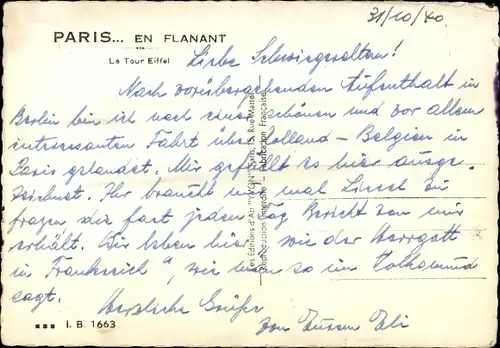 31/10/40
PARIS... EN FLANANT
La Tour Eiffel
Liebe Schwiegereltern!
Nach vorübergehenden Aufenthalt in
Berlin bin ich nach einer schönen und vor allem
interessanten Fahrt über Holland - Belgien in
Paris gelandet. Mir gefällt es hier ausge-
zeichnet. Ihr braucht nur mal Liesel zu
fragen die fast jeden Tag Bericht von mir
erhält. Wir leben hier "wie der Herrgott
in Frankreich", wie man so im Volksmund
sagt. Herzliche Grüße
von Eurem
I. B. 1663
Les Éditions d'Art "YVON", Paris, 15, Rue Martel
Reproduction Interdite - Fabrication Française